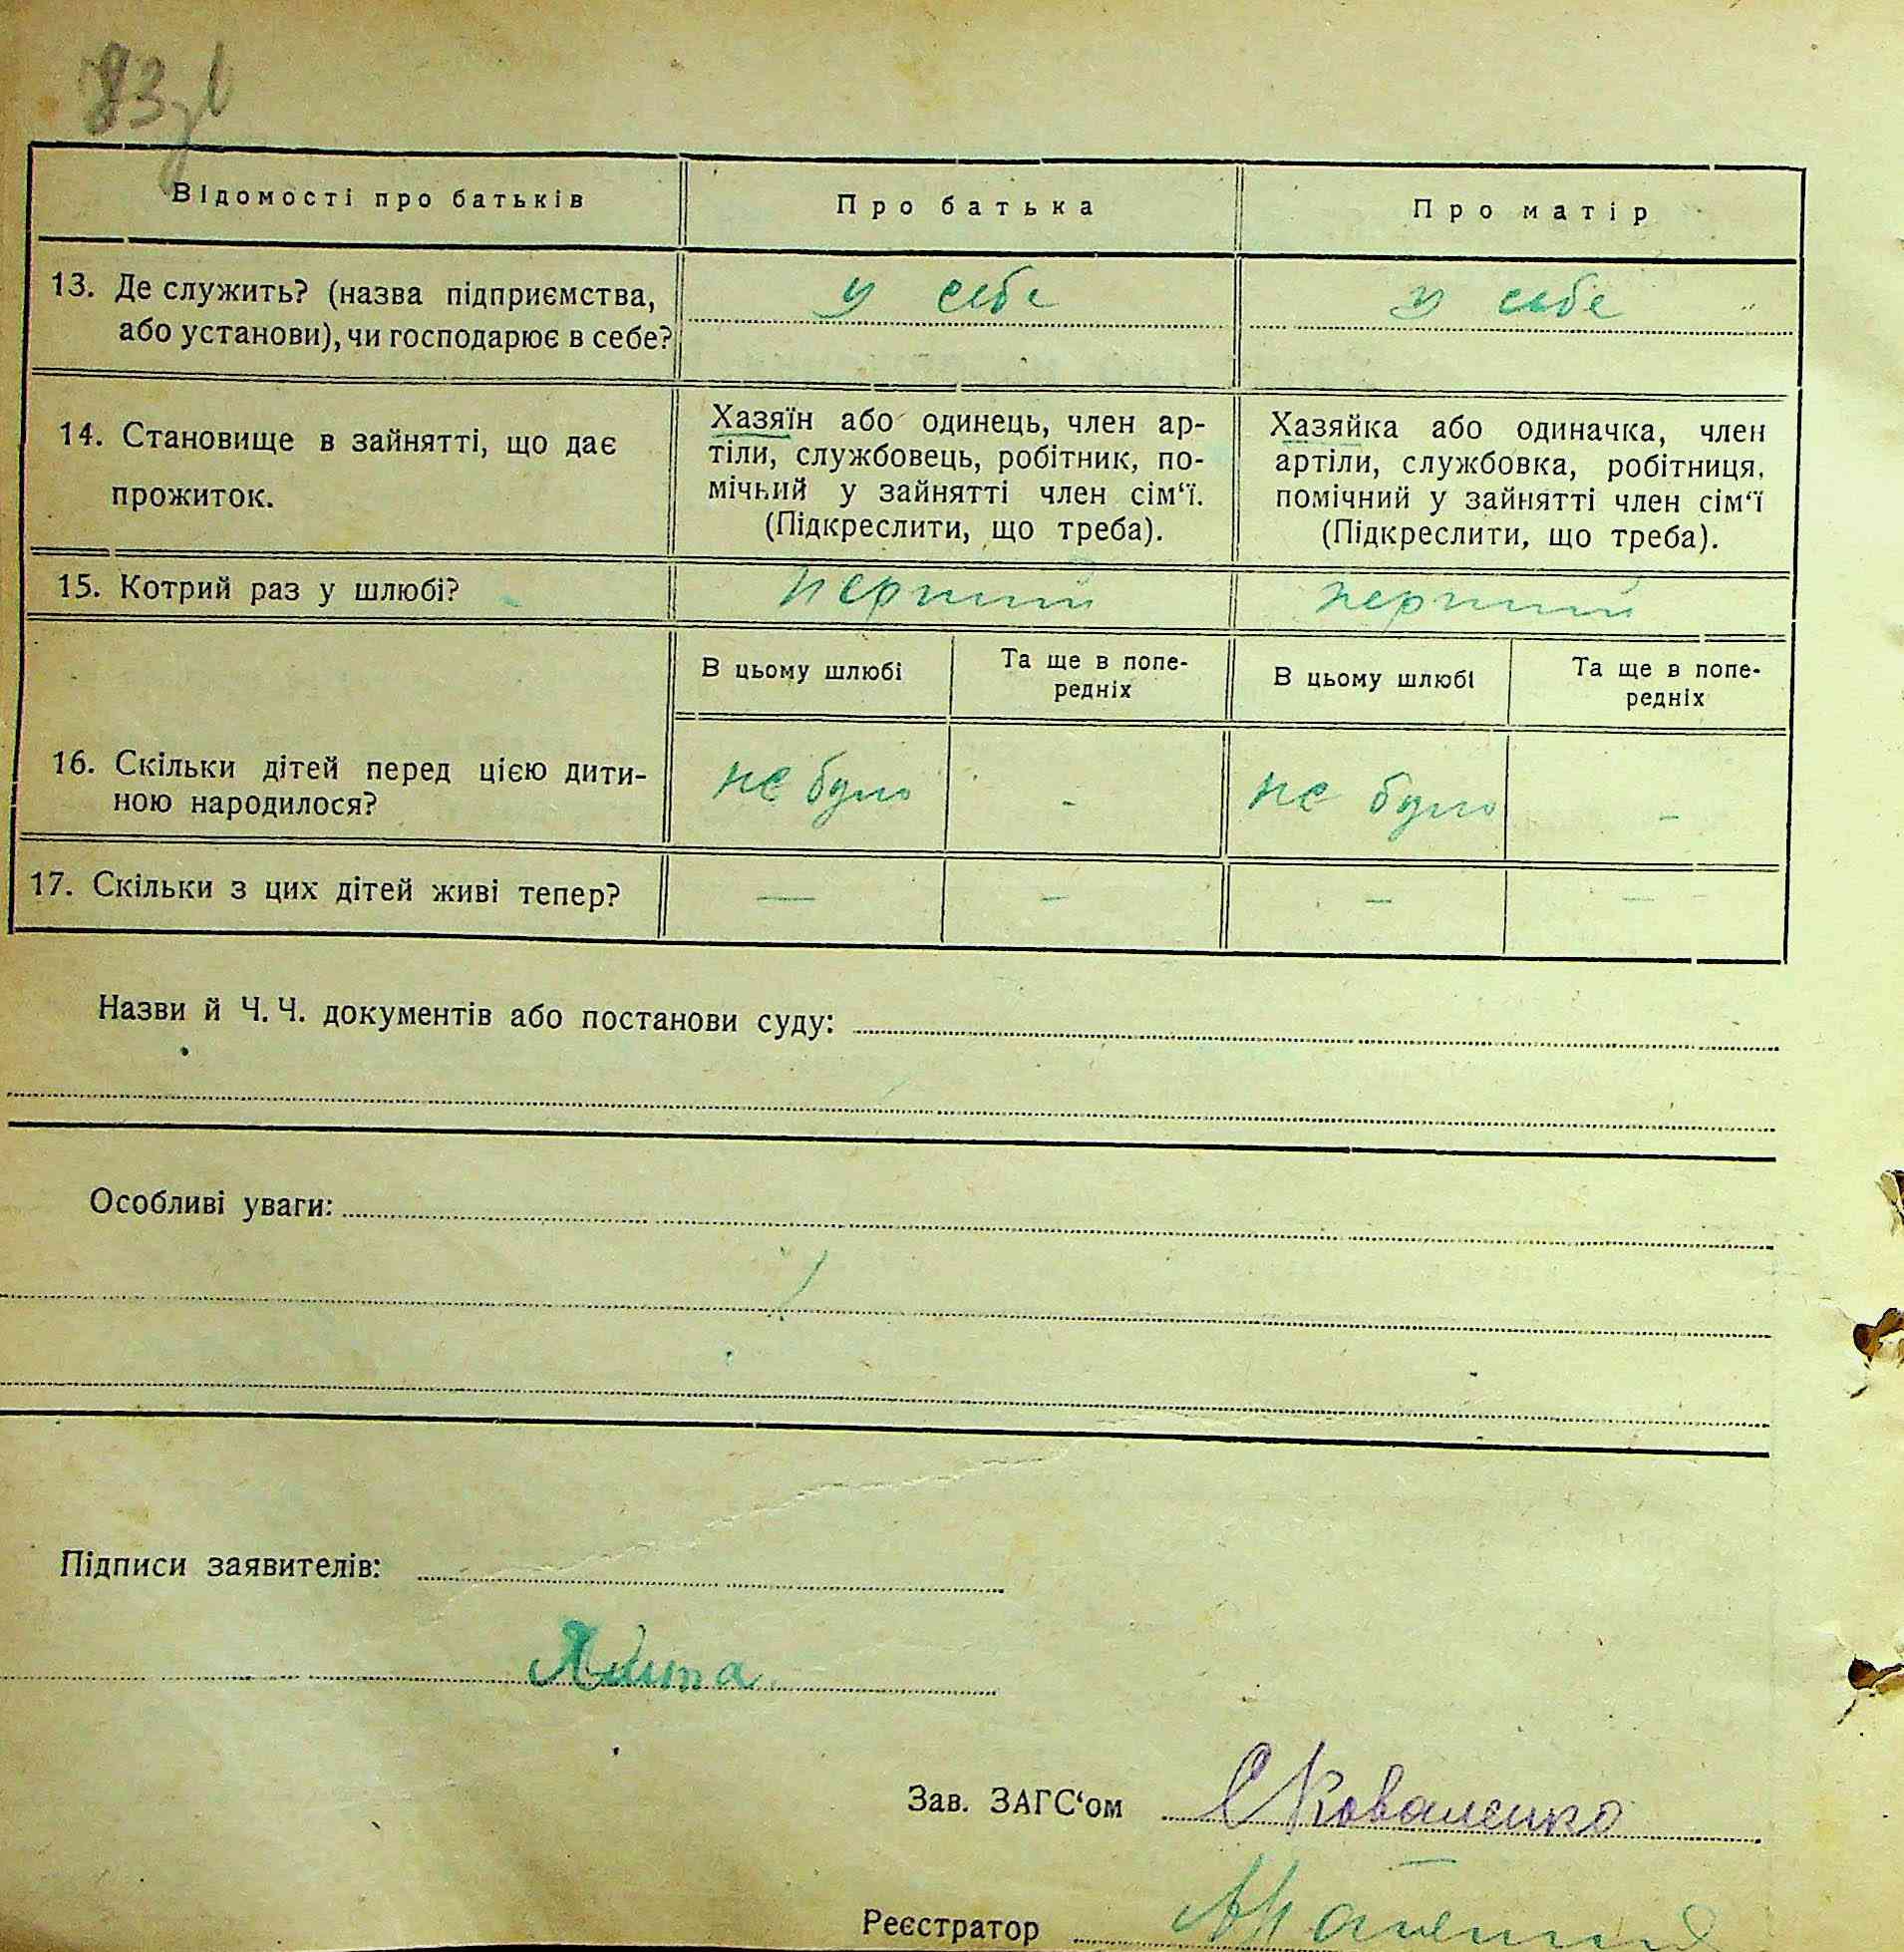 83
Відомості про батьків
Про батька
Про матір
13. Де служить? (назва підприємства,
або установи), чи господарює в себе?
у себе
у себе
14. Становище в зайнятті, що дає
прожиток.
Хазяїн або одинець, член ар-
тіли, службовець, робітник, по-
мічний у зайнятті член сім‘ї.
(Підкреслити, що треба).
Хазяйка або одиначка, член
артіли, службовка, робітниця,
помічний у зайнятті член сім‘ї
(Підкреслити, що треба).
15. Котрий раз у шлюбі?
перший
перший
В цьому шлюбі
Та ще в попе-
редніх
В цьому шлюбі
Та ще в попе-
редніх
16. Скільки дітей перед цією дити-
ною народилося?
не було
-
не було
-
17. Скільки з цих дітей живі тепер?
—
-
-
-
Назви й Ч. Ч. документів або постанови суду:
Особливі уваги:
Підписи заявителів:
Зав. ЗАГС‘ом
ЄКоваленко
Реєстратор